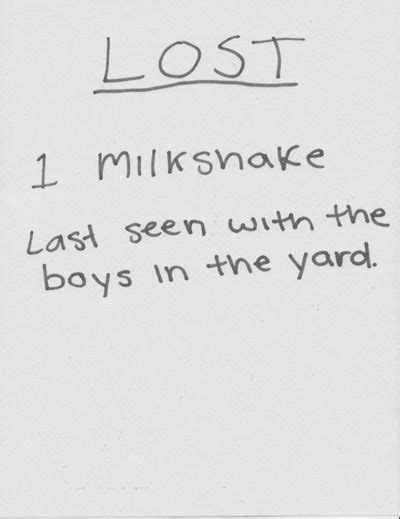 LOST
1 milkshake
Last seen with the
boys in the yard.